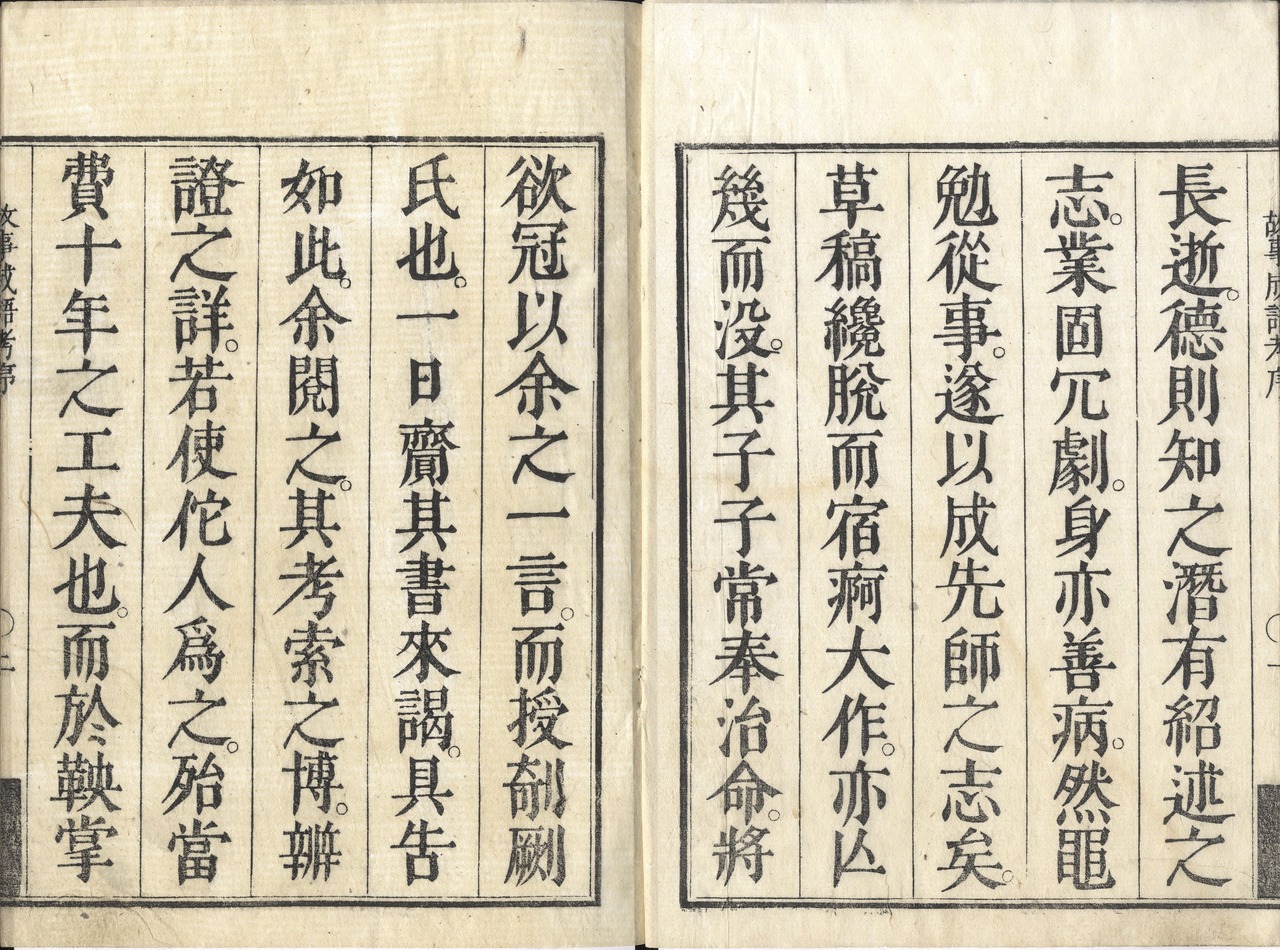 長逝。德則知之潛有紹述之
志。業固冗劇。身亦善病。然黽
勉從事。遂以成先師之志矣。
草稿纔脫而宿痾大作。亦亾
幾而没。其子子常奉治命。將
欲冠以余之一言。而授剞劂
氏也。一日齎其書來謁。具告
如此。余閱之。其考索之博。辨
證之詳。若使佗人爲之。殆當
費十年之工夫也。而於鞅掌
故事成語考序
二